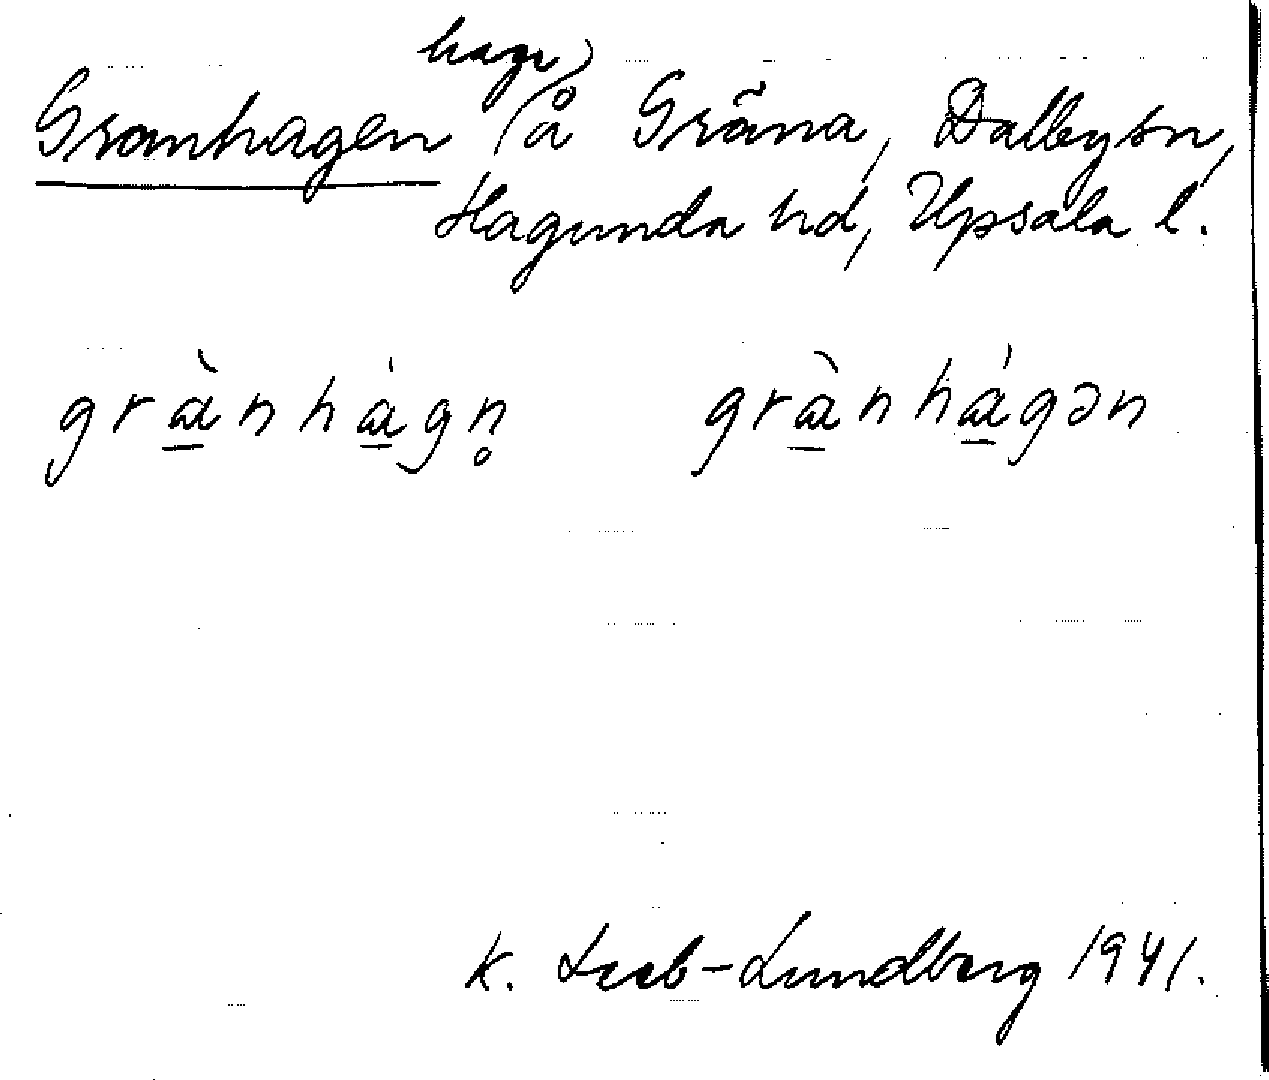 hage)
Granhagen (å Gräna, Dalby sn,
Hagunda hd, Upsala l.
grànhágn̥ grànhágən
K. Leeb-Lundberg 1941.